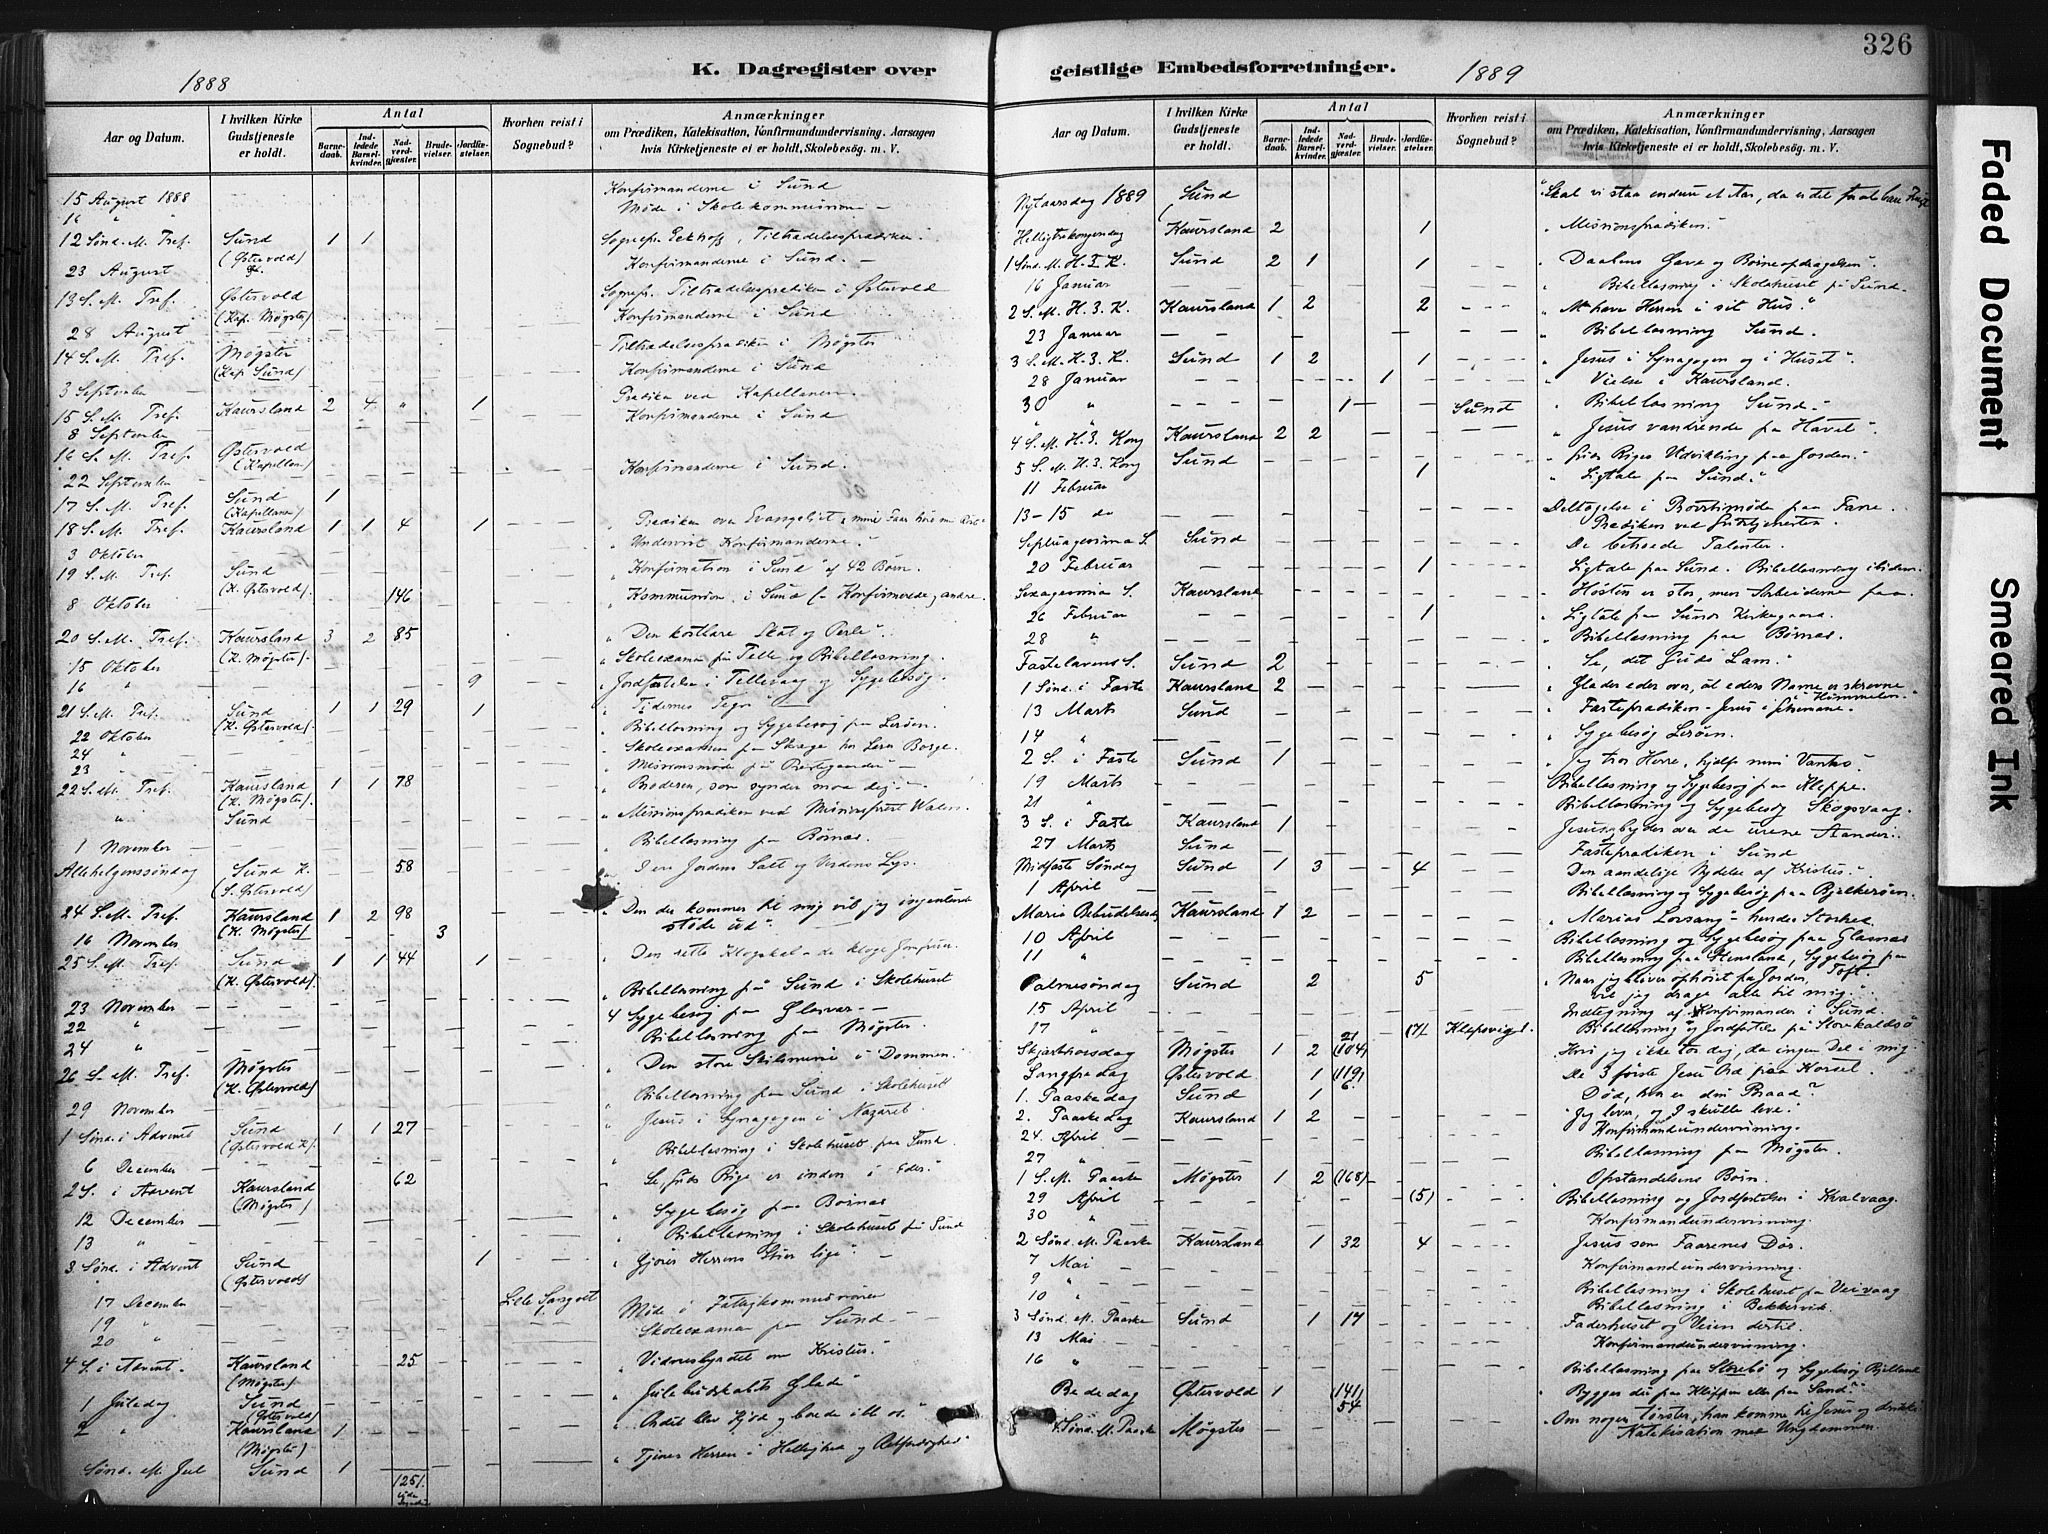 326
K. Dagregister over geistlige Embedsforretninger.
1888
1889
Aar og Datum.
I hvilken Kirke Gudstjeneste er holdt.
Antal
Barnedaab.
Indledede Barselkvinder.
Nadverdgjæster.
Brudevielser.
Jordfæstelser.
Hvorhen reist i Sognebud?
Anmærkninger
om Prædiken, Katekisation, Konfirmandundervisning, Aarsagen
hvis Kirketjeneste ei er holdt, Skolebesøg. m. V.
15 August 1888 Konfirmanderne i Sund
16 " " Møde i Skolekommissionen —
12 Sønd. M. Tref. Sund 1 1 Sognepr. Tiltrædelsesprædiken.
(Østervold)
23 August Konfirmanderne i Sund. —
13 S. M. Tref. Østervold Sognepr. Tiltrædelsesprædiken i Østervold
(Kap. Møgster)
28 August Konfirmanderne i Sund
14 S. M. Tref. Møgster Tiltrædelsesprædiken i Møgster
(Kap. Sund)
3 September Konfirmanderne i Sund
15 S. M. Tref. Kaursland 2 4 " 1 Prædiken ved Kapellanen
8 September Konfirmanderne i Sund
16 S. M. Tref. Østervold
(Kapellan)
22 September Konfirmanderne i Sund.
17 S. M. Tref. Sund 1
(Kapellanen)
18 S. M. Tref. Kaursland 1 1 4 1 Prædiken over Evangeliet
3 Oktober Undervist Konfirmanderne.
19 S. M. Tref. Sund Konfirmation i Sund af 42 Børn.
(K. Østervold)
8 Oktober 146 Kommunion i Sund (Konfirmerede og andre.
20 S. M. Tref. Kaursland 3 2 85 Den kostbare Skat og Perle"
(K. Møgster)
15 Oktober Skoleexamen på Telle og Bibellæsning.
16 " 9 Jordfæstelse i Tellevaag og Sygebesøg
21 S. M. Tref. Sund 1 1 29 1 Tidernes Tegn
(K. Østervold)
22 Oktober Bibellæsning og Sygebesøg paa Lerøen.
24 " Skoleexamen paa Skage
23 " Missionsmøde på Prestegaarden —
22 S. M. Tref. Kaursland 1 1 78 Broderen, som synder mod dig. —
(K. Møgster)
" Sund Missionsprædiken ved Missionsprest
1 November Bibellæsning paa Børnæs.
Allehelgenssøndag Sund K. 58 I ere Jordens Salt og Verdens Lys.
(S. Østervold)
24 S. M. Tref. Kaursland 1 2 98 Den der kommer til mig vil jeg ingenlunde
(K. Møgster) støde ud"
16 November 3
25 S. M. Tref. Sund 1 1 44 1 Den rette Klogskab — de kloge Jomfruer.
(K. Østervold) Bibellæsning på Sund i Skolehuset
23 November Sygebesøg paa Glesvær —
22 " Bibellæsning paa Møgster.
24 "
26 S. M. Tref. Møgster Den store Skilsmisse i Dommen.
(K. Østervold)
29 November Bibellæsning paa Sund i Skolehuset
1 Sønd. i Advent Sund 1 1 27 Jesus i Synagogen i Nazaret.
(Østervold K.)
6 December Bibellæsning i Skolehuset paa Sund.
2 S. i Advent Kaursland 62 Se Guds Rige er inden i Eder."
(Møgster)
12 December Sygebesøg paa Børnæs
13 " Bibellæsning i Skolehuset på Sund
3 Sønd. i Advent Sund 1 Gjører Herrens Stier lige". —
(Østervold)
17 December Lille
19 " Møde i Fattigkommissionen
20 " Skoleexamen paa Sund —
4 S. i Advent. Kaursland 25 Vidnesbyrdet om Kristus.
(Møgster)
1 Juledag Sund Julebudskabets Glæde"
(Østervold)
2 " Kaursland 1 Ordet blev Kjød og boede ibl. os."
(Møgster)
Sønd. M. Jul Sund 1 Tjener Herren i Hellighed og Retfærdighed"
Nytaarsdag 1889 Sund "Skal vi staa endnu et Aar, da er det for at bære Frugt
Helligtrekongersdag Kaursland 2 1 Missionsprædiken.
1 Sønd. M. H. 3. K. Sund 2 1 1 Daabens Gave og Børneopdragelsen"
16 Januar Bibellæsning i Skolehuset på Sund.
2 S. M. H. 3. K. Kaursland 1 2 2 At have Herren i sit Hus."
23 Januar Bibellæsning Sund.
3 S. M. H. 3. K. Sund 1 2 1 Jesus i Synagogen og i Huset".
28 Januar 1 Vielse i Kaursland.
30 " 1 Sund Bibellæsning Sund.
4 S. M. H. 3. Kong Kaursland 2 2 Jesus vandrende paa Havet"
5 S. M. H. 3. Kong Sund Guds Riges Udvikling paa Jorden.
11 Februar 1 Ligtale paa Sund."
13-15 do Deltagelse i Provstimøde paa Fane.
Prædiken ved Gudstjenesten
Septuagesima S. Sund De betroede Talenter.
20 Februar 1 Ligtale paa Sund. Bibellæsning ibidem.
Sexagesima S. Kaursland Høsten er stor, men Arbeiderne faa.
26 Februar 1 Ligtale paa Sunds Kirkegaard.
28 " Bibellæsning paa Børnæs.
Fastelavens S. Sund 2 Se, det Guds Lam."
1 Sønd. i Faste Kaursland 2 Glæder eder over, at eders Navne er skrevne
i Himmelen."
13 Marts Sund Fasteprædiken - Jesus i Getsemane.
14 " Sygebesøg Lerøen.
2 S. i Faste Sund 1 Jeg tror Herre, hjælp min Vantro."
19 Marts Bibellæsning og Sygebesøg paa Kleppe.
21 " Bibellæsning og Sygebesøg Skogsvaag.
3 S. i Faste Kaursland 1 Jesus byder over de urene Aander.
27 Marts Sund Fasteprædiken i Sund
Midfaste Søndag Sund 1 3 4 Den aandelige Nydelse af Kristus.
1 April Bibellæsning og Sygebesøg paa Bjelkerøen.
Mariæ Bebudelsesd. Kaursland 1 2 Marias Lovsang - hendes Storhed
10 April Bibellæsning og Sygebesøg paa Glesnæs
11 " Bibellæsning paa Stensland, Sygebesøg paa
Toft.
Palmesøndag Sund 2 5 Naar jeg bliver ophøiet fra Jorden,
vil jeg drage alle til mig."
15 April Indlegning af Konfirmander i Sund.
17 " 21 (7) Klepsvig Bibellæsning og Jordfæstelse på Storekalsø
Skjærthorsdag Møgster 1 2 (104) Hvis jeg ikke tor dig, da ingen Del i mig
Langfredag Østervold 1 (119) De 3 første Jesu Ord paa Korset.
1. Paaskedag Sund 1 6 Død, hvor er din Braad?
2. Paaskedag Kaursland 1 2 Jeg lever, og I skulle leve."
24. April Konfirmandundervisning.
27 " Bibellæsning paa Møgster.
1 S. M. Paaske Møgster 1 2 (168) Opstandelsens Børn.
29 April (5) Bibellæsning og Jordfæstelse i Kvalvaag.
30 " Konfirmandundervisning.
2 Sønd. M. Paaske Kaursland 1 32 4 Jesus som Faarenes Dør.
7 Mai Konfirmandundervisning.
9 " Bibellæsning i Skolehuset paa Veivaag
10 " Bibellæsning i Bekkervik.
3 Sønd. M. Paaske Sund 1 17 Faderhuset og Veien dertil.
13 Mai Konfirmandundervisning.
16 " Bibellæsning paa Storebø og Sygebesøg Bjelland
Bededag Østervold 1 (141) Bygger du paa Klippen eller paa Sand?"
54
4 Sønd. M. Paaske Møgster Om nogen tørster, han komme til Jesus og drikke
Katekisation med Ungdommen.
Faded Document
Smeared Ink